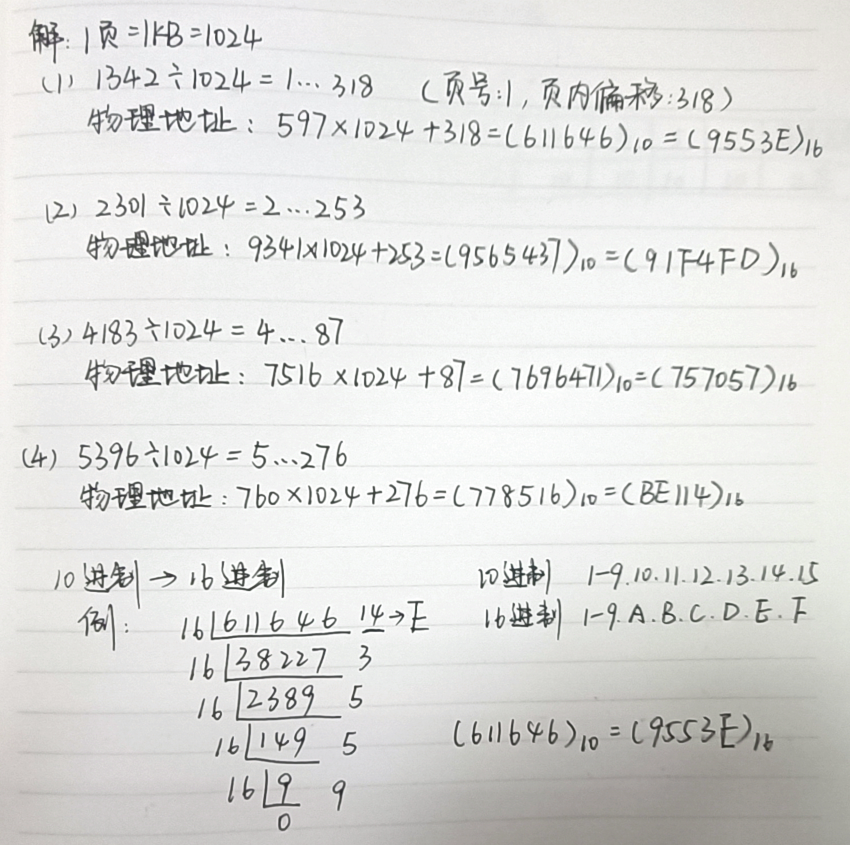 解: 1页=1KB=1024
(1) 1342÷1024=1...318 (页号:1, 页内偏移:318)
物理地址: 597×1024+318=(611646)10=(9553E)16
(2) 2301÷1024=2...253
物理地址: 9341×1024+253=(9565437)10=(91F4FD)16
(3) 4183÷1024=4...87
物理地址: 7516×1024+87=(7696471)10=(757057)16
(4) 5396÷1024=5...276
物理地址: 760×1024+276=(778516)10=(BE114)16
10进制→16进制
例: 16 611646 14→E
16 38227 3
16 2389 5
16 149 5
16 9 9
0
10进制 1-9.10.11.12.13.14.15
16进制 1-9.A.B.C.D.E.F
(611646)10=(9553E)16